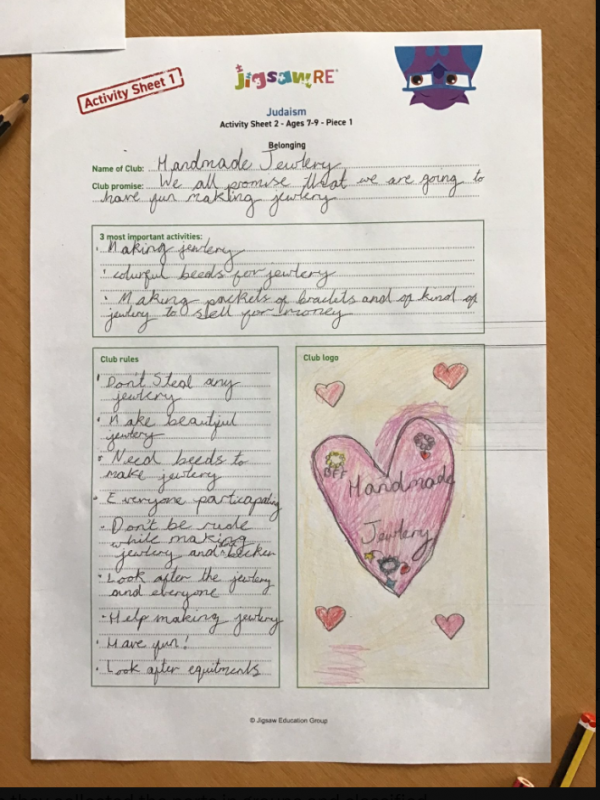 Activity Sheet 1
jigsaw RE
Judaism
Activity Sheet 2 - Ages 7-9 - Piece 1
Belonging
Name of Club: Handmade Jewtery
Club promise: We all promise that we are going to
have fun making jewtery
3 most important activities:
• Making jewtery
• colurful beeds for jewtery
• Making packets of braclets and of kind of
jewtery to sell for money
Club rules
• Don't Steal any
jewtery
• Make beautiful
jewtery
• Need beeds to
make jewtery
• Everyone participating
• Don't be rude
while making
jewtery and
• Look after the jewtery
and everyone
• Help making jewtery
• Have fun!
• Look after equitments
Club logo
BFF
Handmade
Jewtery
© Jigsaw Education Group